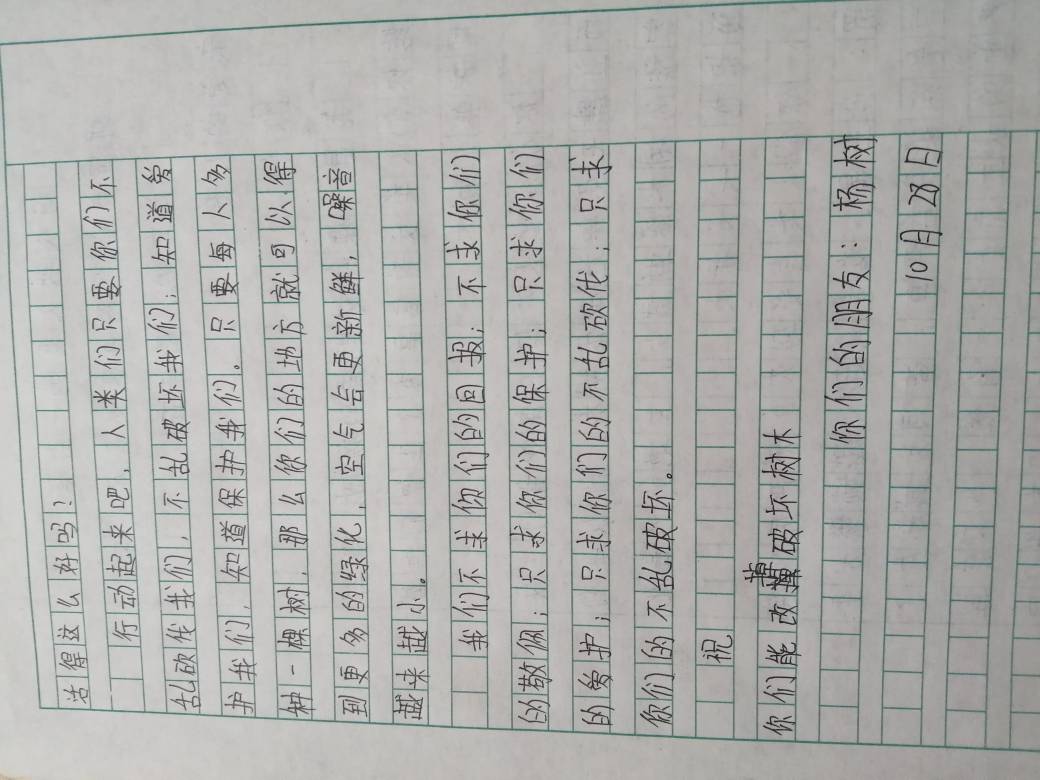 活得这么好吗？
行动起来吧，人类们只要你们不
乱砍伐我们，不乱破坏我们；知道爱
护我们，知道保护我们。只要每人多
种一棵树，那么你们的地方就可以得
到更多的绿化，空气会更新鲜，噪音
越来越小。
我们不求你们的回报；不求你们
的敬佩；只求你们的保护；只求你们
的爱护；只求你们的不乱砍伐；只求
你们的不乱破坏。
祝
你们能改掉破坏树木
你们的朋友：杨树
10月28日